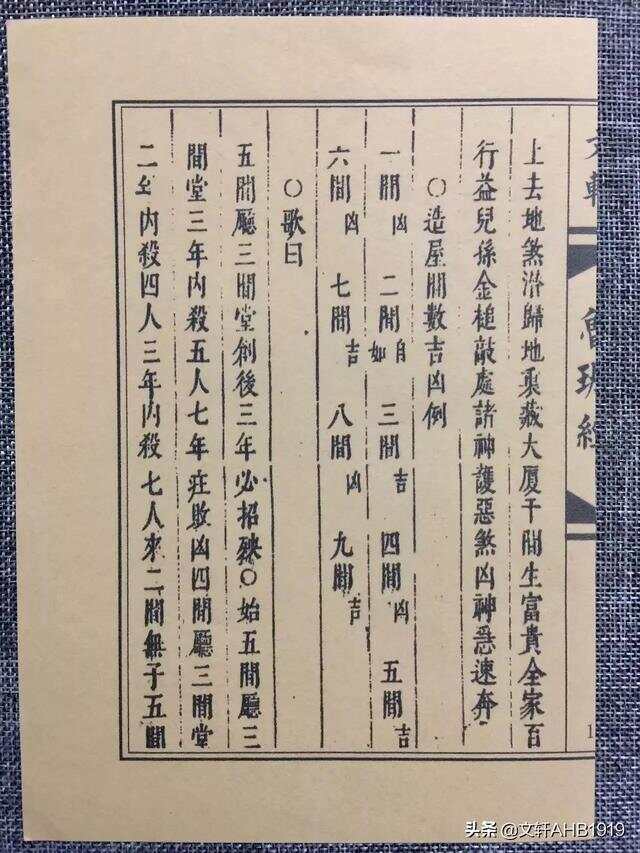 魯班經
上去地煞潛歸地裏藏大厦千間生富貴全家百
行益兒孫金槌敲處諸神護惡煞凶神急速奔
○造屋間數吉凶例
一間凶 二間自如 三間吉 四間凶 五間吉
六間凶 七間吉 八間凶 九間吉
○歌曰
五間廳三間堂創後三年必招殃○始五間廳三
間堂三年內殺五人七年庄敗凶四間廳三間堂
二年內殺四人三年內殺七人來二間無子五間
頭条 @文轩AHB1919